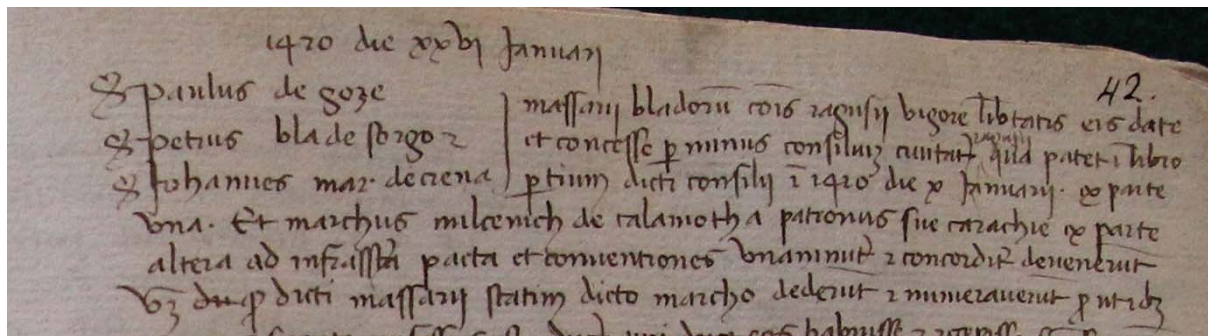 1420 die xxvi Januarij
42.
S paulus de goze
S petrus bla de sorgo 2
S Johannes mar. de crena
massarij bladorū cōis ragusij vigore libtatis eis date
et concesse p minus consiliuȝ civitat ragusij qua patet ī libro
ptium dicti consilij ī 1420 die x Januarij. ex parte
vna. Et marchus milcenich de calamotha patronus sue carachie ex parte
altera ad infrasstā pacta et conventiones vnanimit 2 concordit devenerūt
vȝ q dicti massarij statim dicto marcho dederūt 2 numeraverūt p
habuisse 2